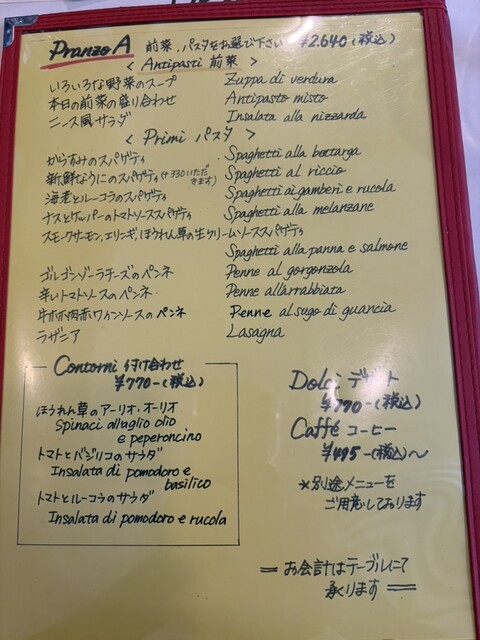 Pranzo A 前菜、パスタをお選び下さい ¥2.640 (税込)
< Antipasti 前菜 >
いろいろな野菜のスープ Zuppa di verdura
本日の前菜の盛り合わせ Antipasto misto
ニース風サラダ Insalata alla nizzarda
< Primi パスタ >
からすみのスパゲティ Spaghetti alla bottarga
新鮮なうにのスパゲティ (+330いただきます) Spaghetti al riccio
海老とルーコラのスパゲティ Spaghetti ai gamberi e rucola
ナスとケッパーのトマトソーススパゲティ Spaghetti alla melanzane
スモークサーモン、エリンギ、ほうれん草の生クリームソーススパゲティ
Spaghetti alla panna e salmone
ゴルゴンゾーラチーズのペンネ Penne al gorgonzola
辛いトマトソースのペンネ Penne all'arrabbiata
牛ホホ肉赤ワインソースのペンネ Penne al sugo di guancia
ラザニア Lasagna
Contorni 付け合わせ
¥770-(税込)
ほうれん草のアーリオ・オーリオ
Spinaci all'aglio olio
e peperoncino
トマトとバジリコのサラダ
Insalata di pomodoro e
basilico
トマトとルーコラのサラダ
Insalata di pomodoro e rucola
Dolci デザート
¥770-(税込)
Caffé コーヒー
¥495-(税込)～
*別途メニューを
ご用意しております
= お会計はテーブルにて
承ります =